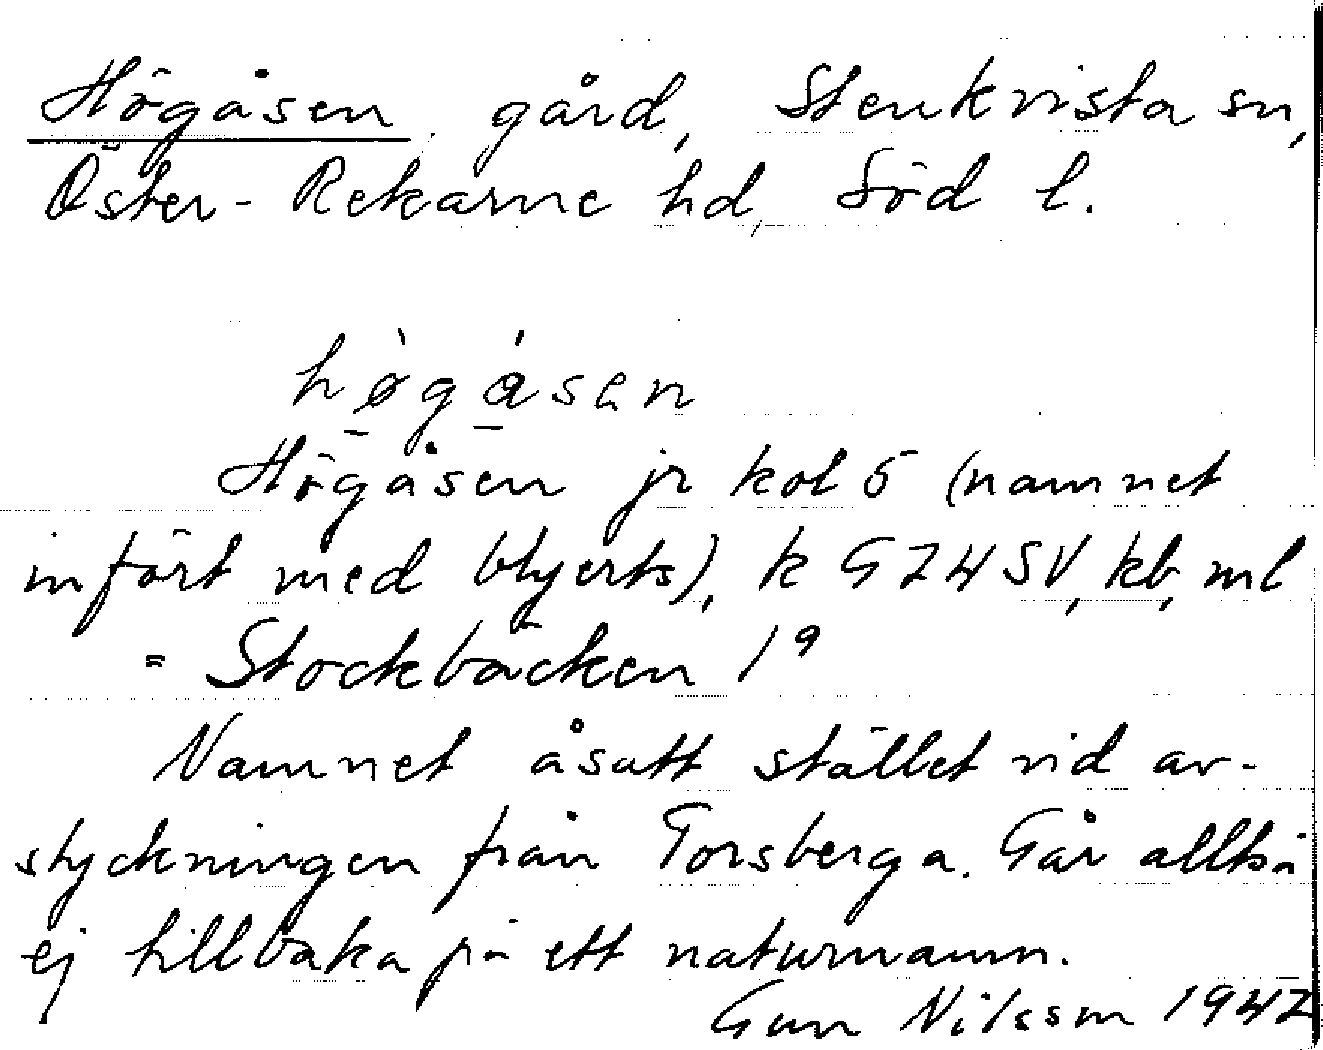 Högåsen gård, Stenkvista sn,
Öster-Rekarne hd, Söd l.
hø̀gásen
Högåsen jr kol 5 (namnet
infört med blyerts), k GZHSV, kb, ml
= Stockbäcken 1⁹
Namnet åsatt stället vid av-
styckningen från Torsberga. Går alltså
ej tillbaka på ett naturnamn.
Gun Nilsson 1942